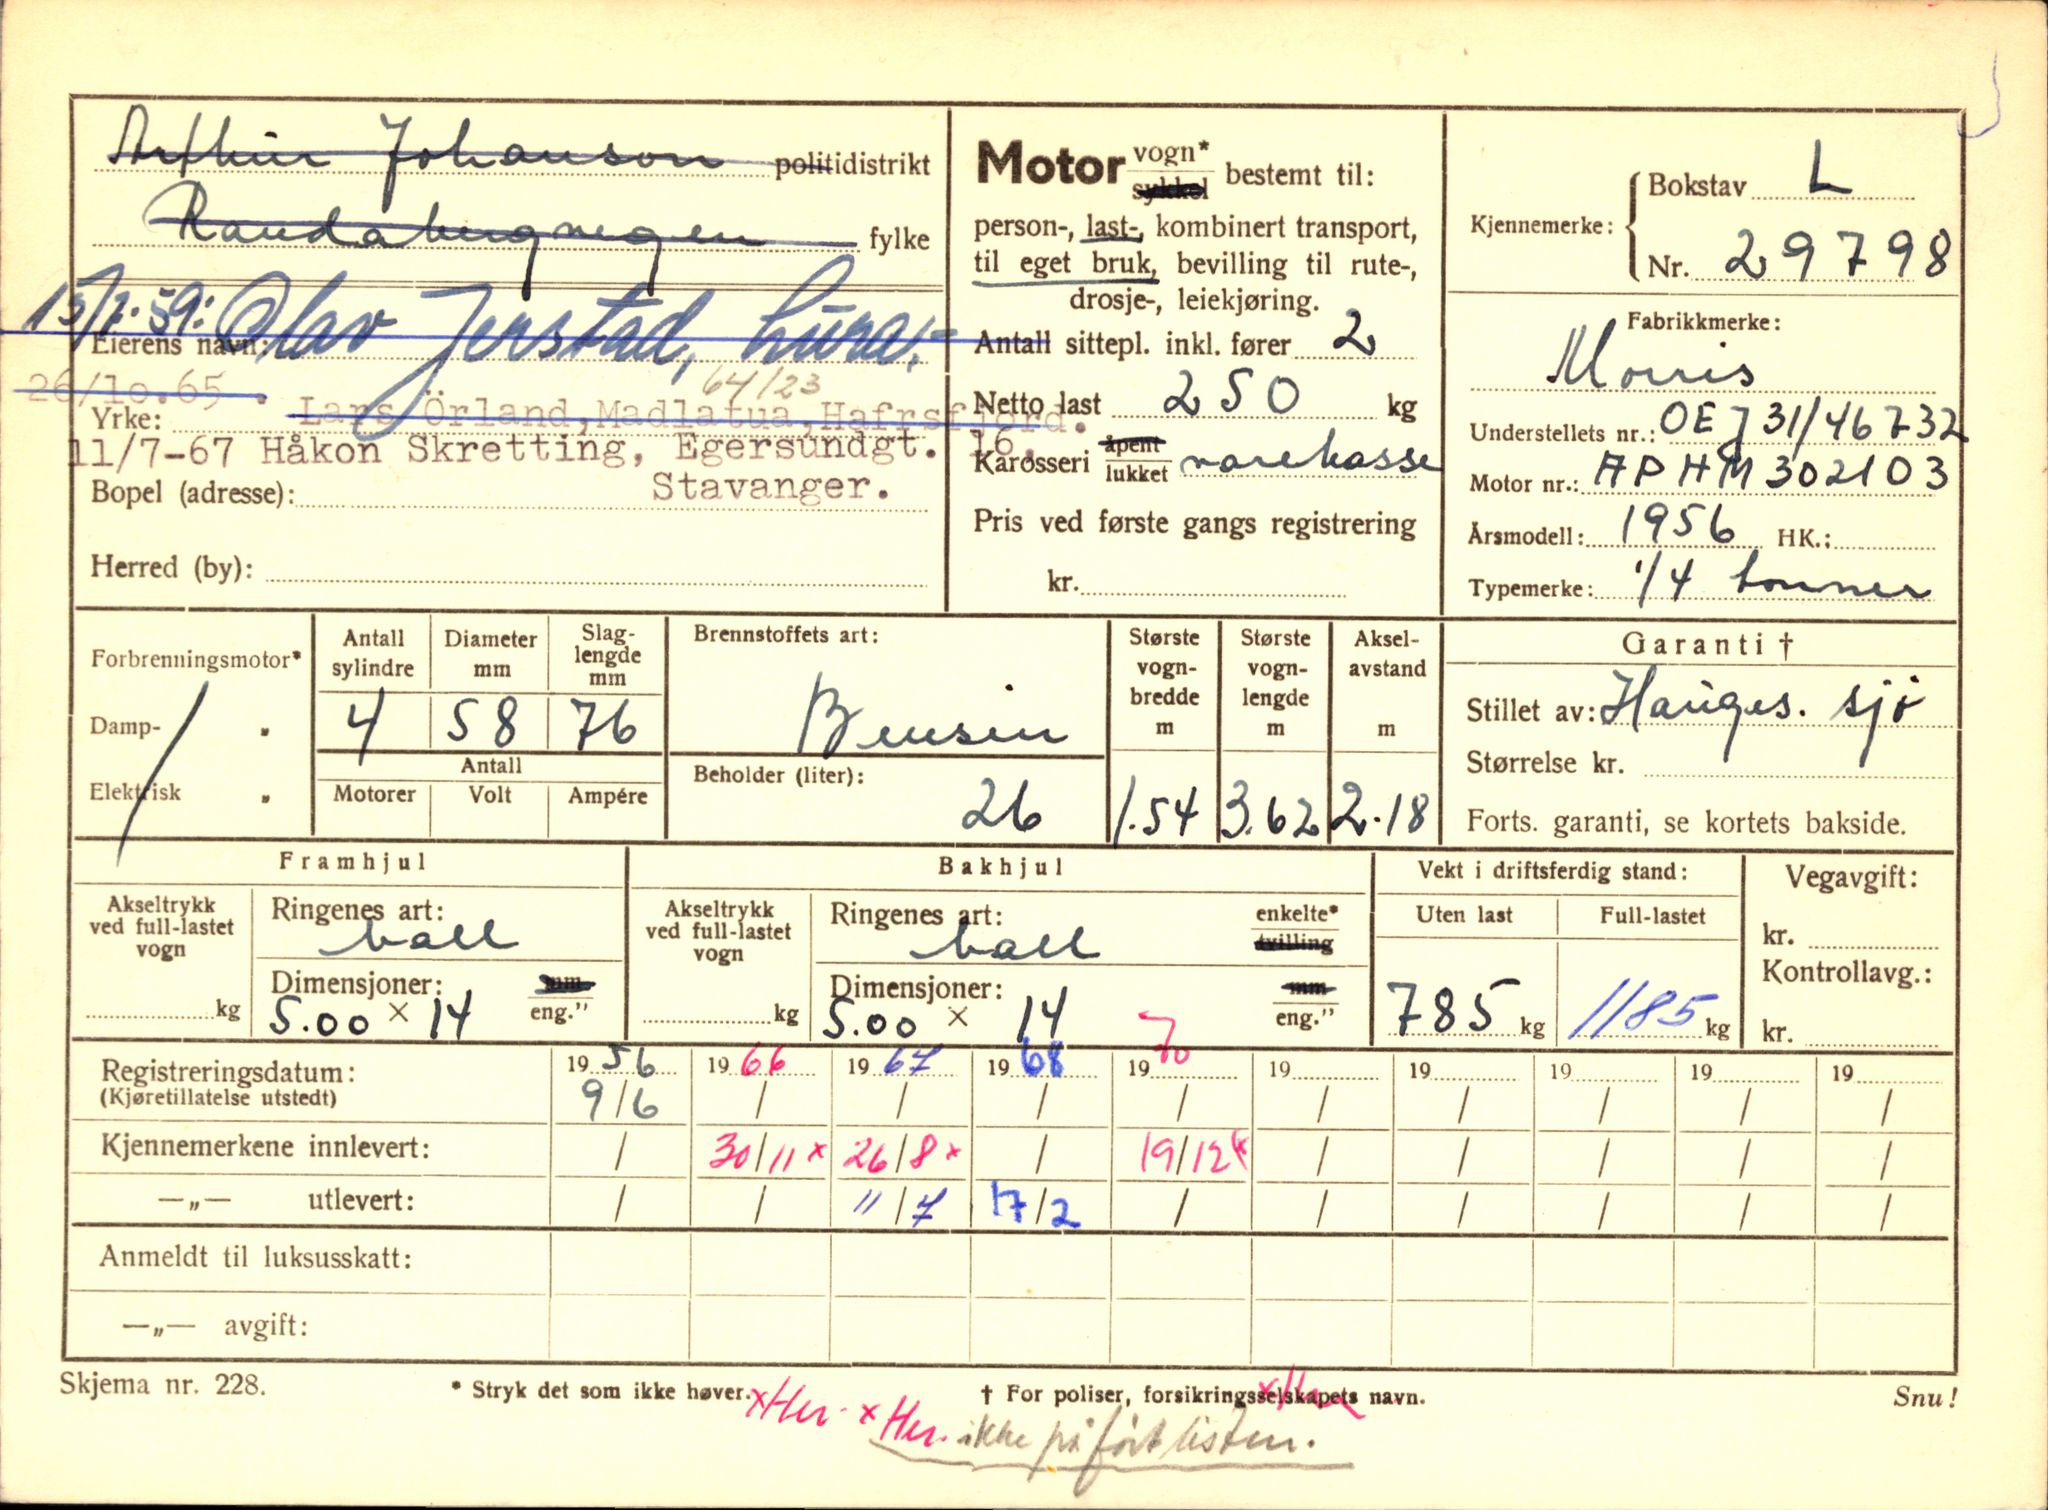 Arthur Johanson politidistrikt
Randabergvegen fylke
15/7.59: Olav Jerstad, Lura,-
Eierens navn:
26/10.65 . 64/23
Yrke: Lars Örland, Madlatua, Hafrsfjord.
11/7-67 Håkon Skretting, Egersundgt. 16.
Bopel (adresse): Stavanger.
Herred (by):
Motor vogn* sykkel bestemt til:
person-, last-, kombinert transport,
til eget bruk, bevilling til rute-,
drosje-, leiekjøring.
Antall sittepl. inkl. fører 2
Netto last 250 kg
Karosseri åpent lukket varekasse
Pris ved første gangs registrering
kr.
Kjennemerke: Bokstav L
Nr. 29798
Fabrikkmerke:
Morris
Understellets nr.: OEJ 31/46732
Motor nr.: APHM 302103
Årsmodell: 1956 HK.:
Typemerke: 1/4 tonner
Forbrenningsmotor*
Damp- „
Elektrisk „
Antall sylindre Diameter mm Slag-lengde mm
4 58 76
Antall
Motorer Volt Ampére
Brennstoffets art:
Bensin
Beholder (liter):
26
Største vogn-bredde m Største vogn-lengde m Aksel-avstand m
1.54 3.62 2.18
Garanti †
Stillet av: Hauges. sjø
Størrelse kr.
Forts. garanti, se kortets bakside.
Framhjul
Akseltrykk ved full-lastet vogn
kg
Ringenes art:
ball
Dimensjoner: mm
5.00 × 14 eng.”
Bakhjul
Akseltrykk ved full-lastet vogn
kg
Ringenes art: enkelte*
ball tvilling
Dimensjoner: mm
5.00 × 14 eng.”
Vekt i driftsferdig stand:
Uten last Full-lastet
785 kg 1185 kg
Vegavgift:
kr.
Kontrollavg.:
kr.
Registreringsdatum: 1956 1966 1967 1968 1970 19 19 19 19 19
(Kjøretillatelse utstedt) 9/6 / / / / / / / / /
Kjennemerkene innlevert: / 30/11 x 26/8 x / 19/12 x / / / / /
—„— utlevert: / / 11/7 17/2 / / / / / /
Anmeldt til luksusskatt:
—„— avgift:
Skjema nr. 228. * Stryk det som ikke høver. † For poliser, forsikringsselskapets navn. Snu!
x Her. x Her. x Her
ikke påført listen.